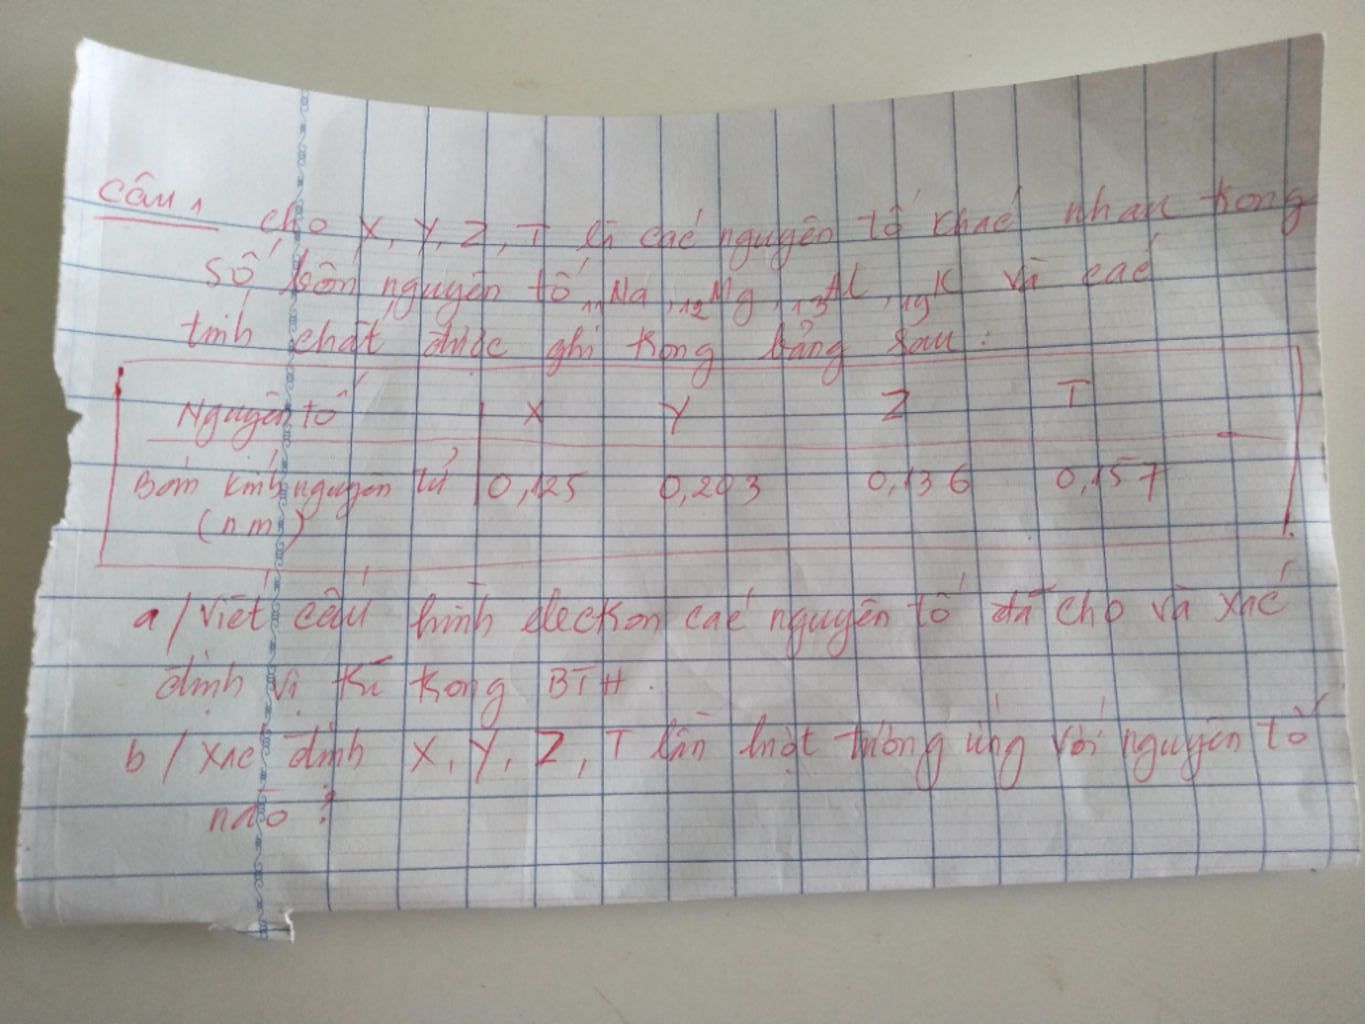 Câu 1 Cho X, Y, Z, T là các nguyên tố khác nhau trong
số bốn nguyên tố ₁₁Na, ₁₂Mg, ₁₃Al, ₁₉K và các
tính chất được ghi trong bảng sau:
Nguyên tố X Y Z T
Bán kính nguyên tử 0,125 0,203 0,136 0,157
(nm)
a/ Viết cấu hình electron các nguyên tố đã cho và xác
định vị trí trong BTH.
b/ Xác định X, Y, Z, T lần lượt tương ứng với nguyên tố
nào?